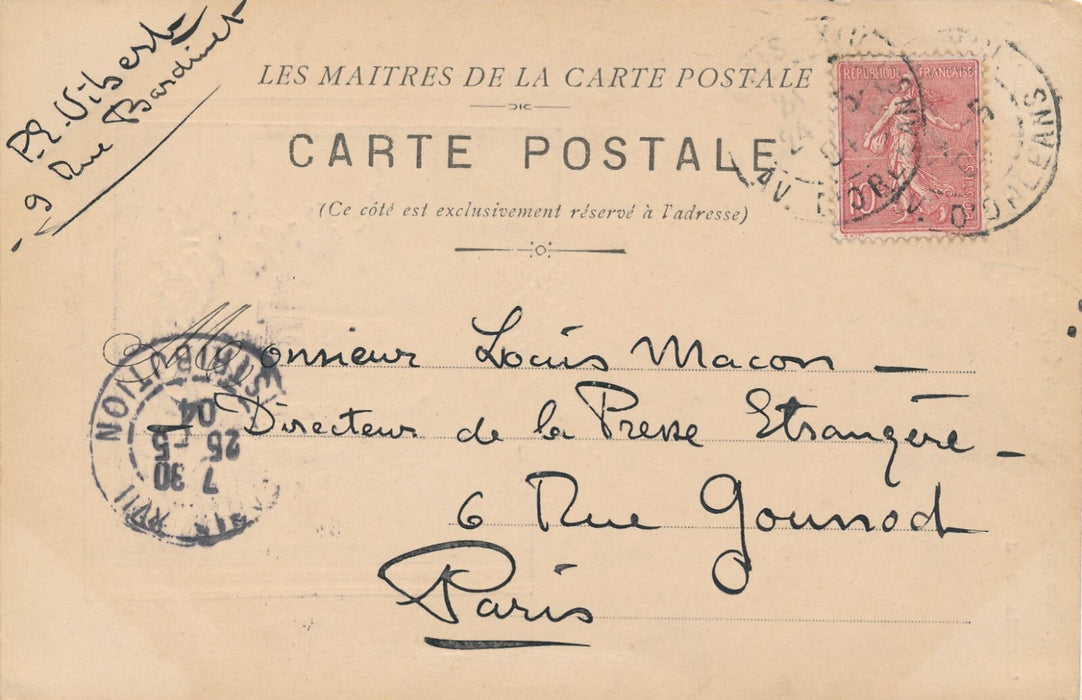 P.E. Vibert
9 Rue Bardinet
LES MAITRES DE LA CARTE POSTALE
CARTE POSTALE
(Ce côté est exclusivement réservé à l'adresse)
RÉPUBLIQUE FRANÇAISE
POSTES
10
AV. D'ORLEANS
AV. D'ORLEANS
Monsieur Louis Macon —
— Directeur de la Presse Etrangère —
6 Rue Gounod
Paris
DISTRIBUTION
7 30
25 -5
04
PARIS XVII